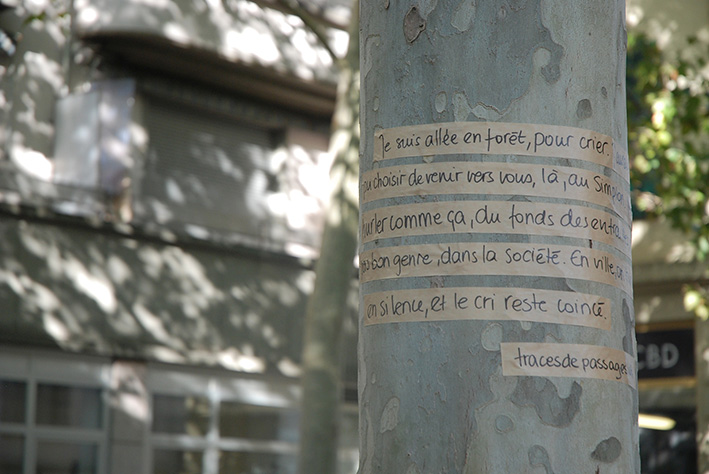 Je suis allée en forêt, pour crier.
choisir de venir vers vous, là, au
comme ça, du fonds des
bon genre, dans la société. En ville,
en silence, et le cri reste coincé.
traces de passages
CBD